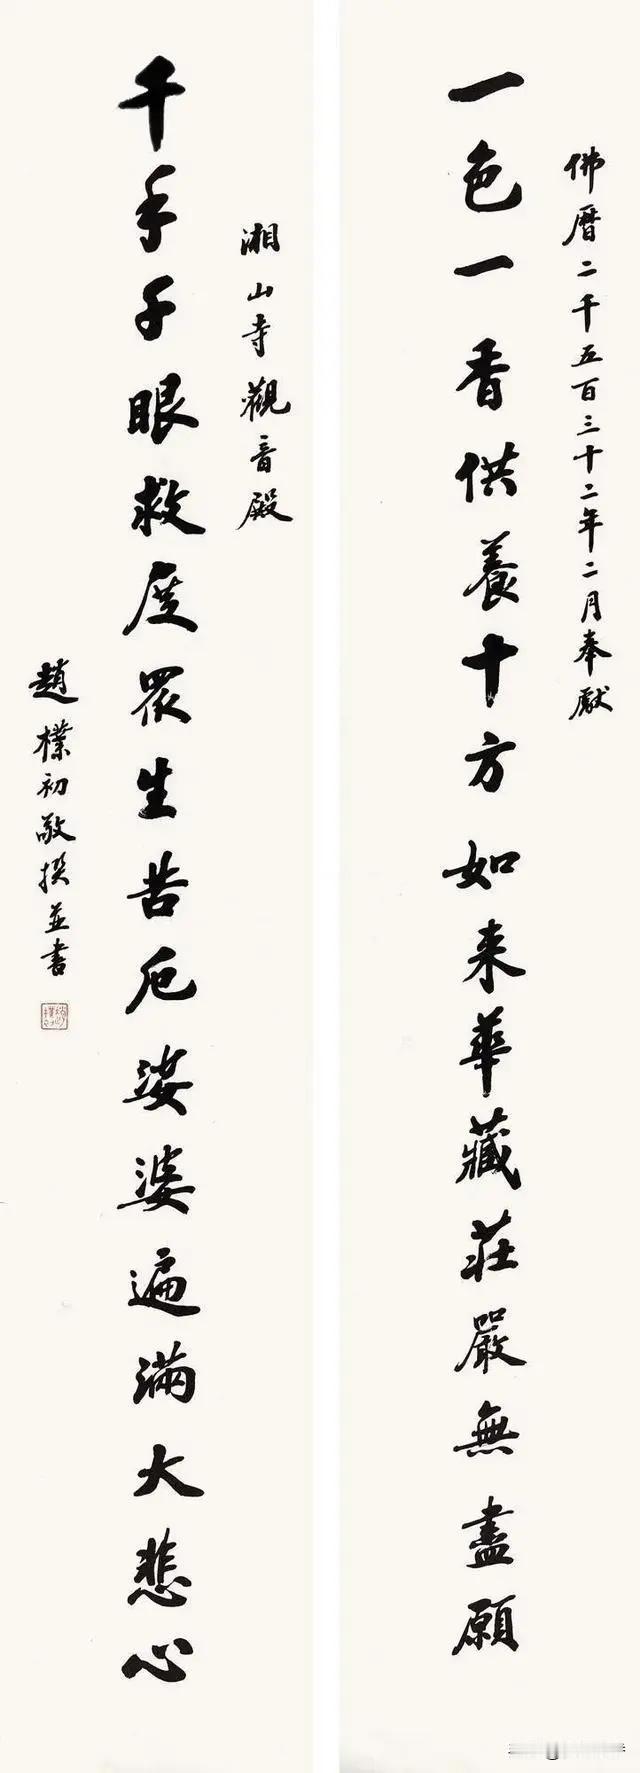 佛曆二千五百三十二年二月奉獻
一色一香供養十方如来華藏莊嚴無盡願
湘山寺觀音殿
千手千眼救度眾生苦厄娑婆遍滿大悲心
趙樸初敬撰並書